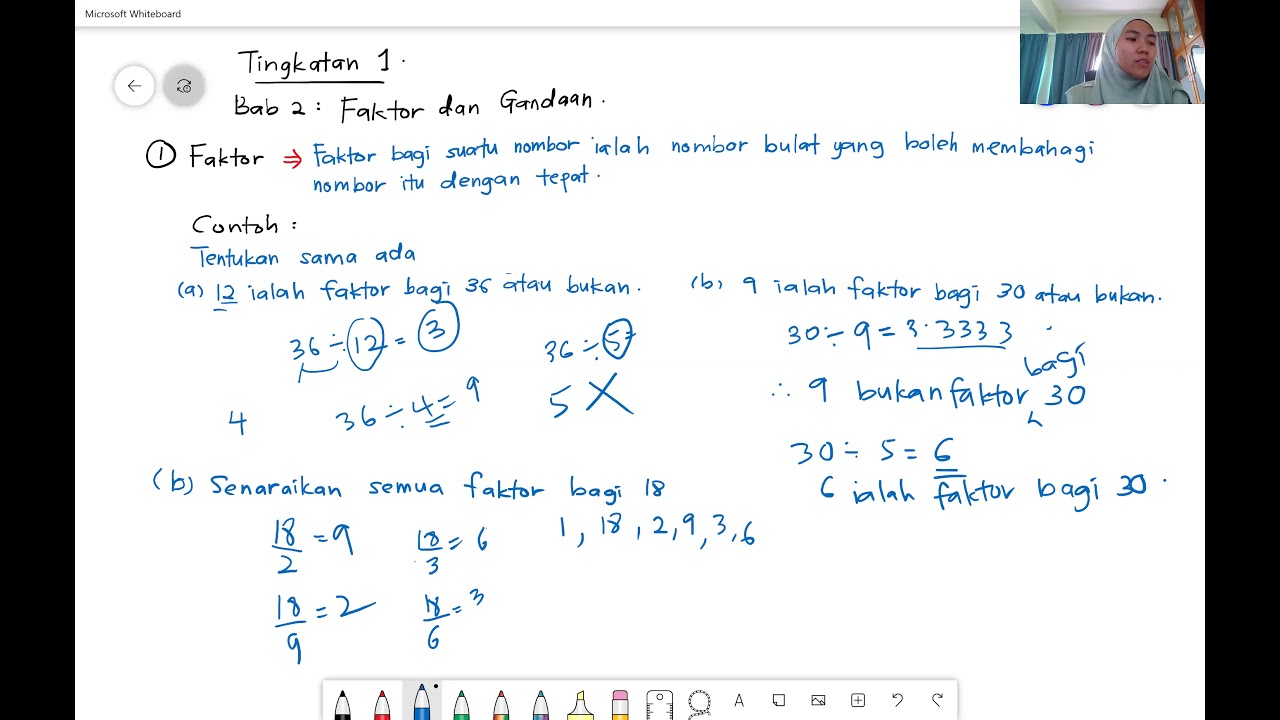 Microsoft Whiteboard
Tingkatan 1.
Bab 2 : Faktor dan Gandaan.
① Faktor ⇒ Faktor bagi suatu nombor ialah nombor bulat yang boleh membahagi
nombor itu dengan tepat.
Contoh :
Tentukan sama ada
(a) 12 ialah faktor bagi 36 atau bukan.
36 ÷ 12 = 3
36 ÷ 5
4
36 ÷ 4 = 9
5 X
(b) 9 ialah faktor bagi 30 atau bukan.
30 ÷ 9 = 3.3333
∴ 9 bukan faktor bagi 30
30 ÷ 5 = 6
6 ialah faktor bagi 30.
(b) Senaraikan semua faktor bagi 18
18/2 = 9
18/3 = 6
1, 18, 2, 9, 3, 6
18/9 = 2
18/6 = 3
A